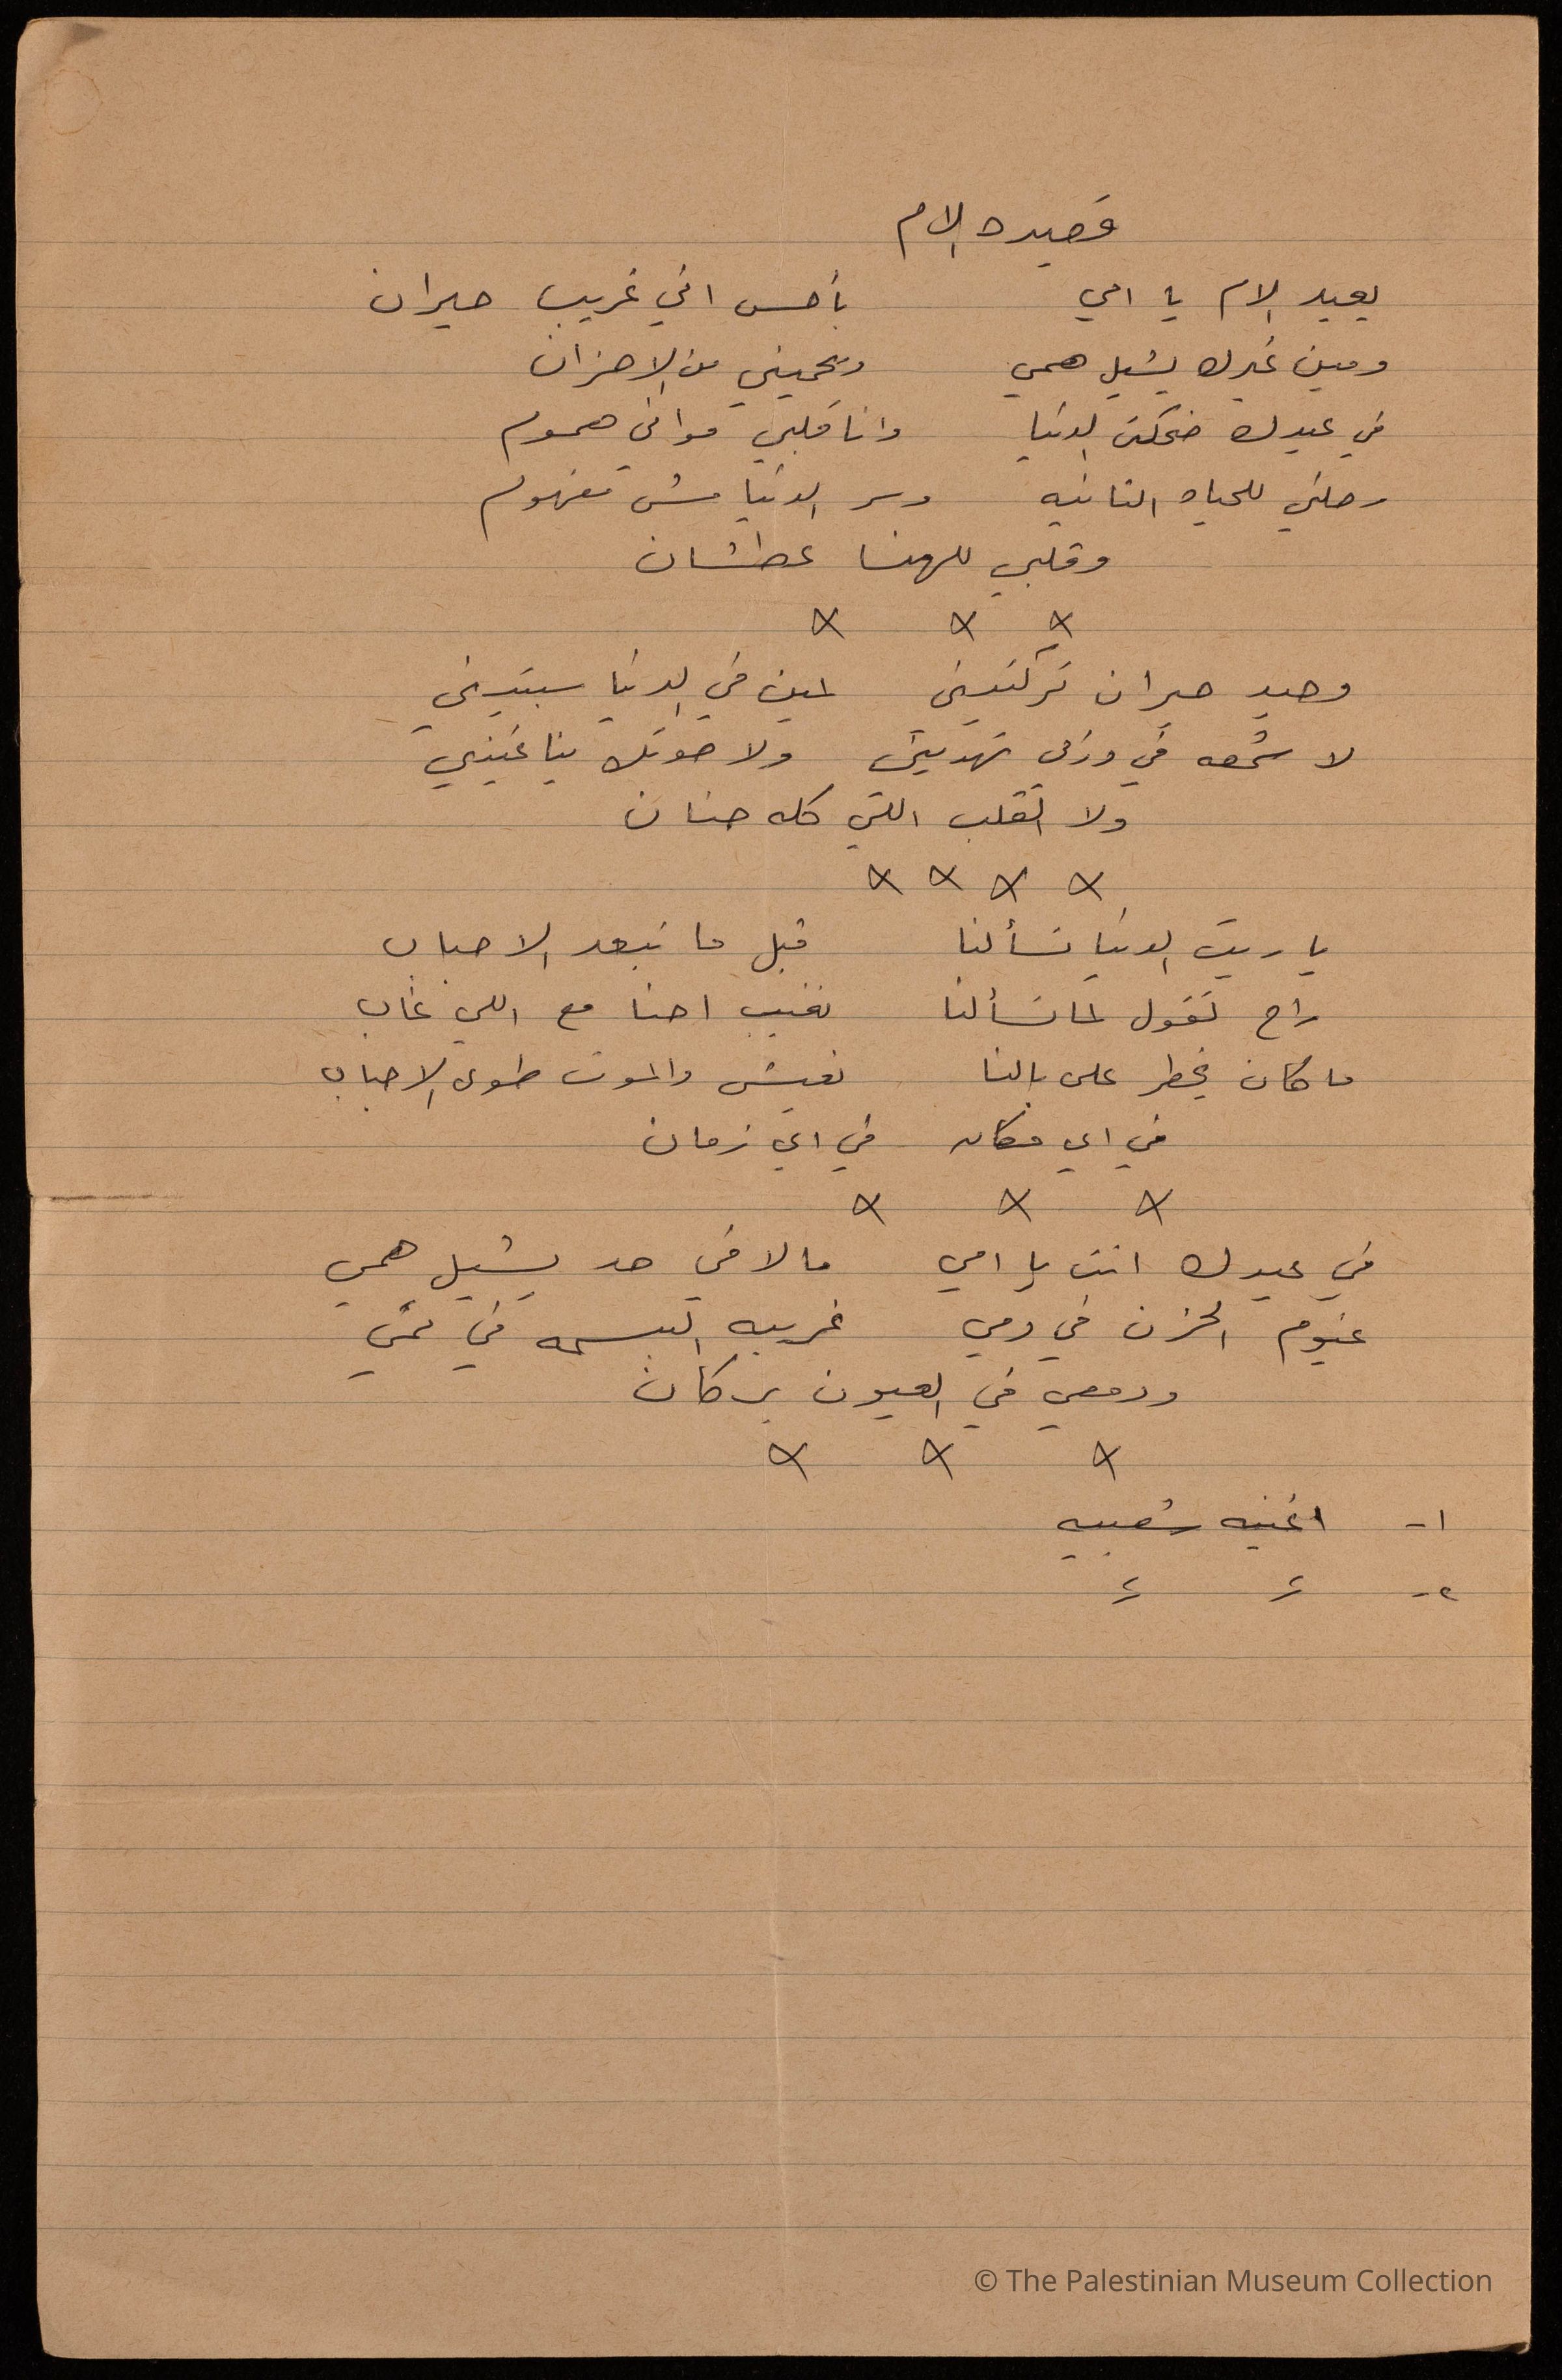 قصيده الام
بعيد الام يا امي بأحس اني غريب حيران
ومين غيرك يشيل همي ويحميني من الاحزان
في عيدك ضحكت الدنيا وانا قلبي مواني هموم
رحلتي للحياه الثانيه وسر الدنيا مش مفهوم
وقلبي للهنا عطشان
x x x
وحيد حيران تركتيني لمين في الدنيا سبتيني
لا شمعه في تهديني ولا صوتك يناغيني
ولا القلب اللي كله حنان
x x x x
يا ريت الدنيا تسألنا قبل ما تبعد الاحباب
راح نقول لما تسألنا نغيب احنا مع اللي غاب
ما كان يخطر على بالنا نعيش والموت طوى الاحباب
في اي مكان في اي زمان
x x x
في عيدك انت يا امي مالاقي حد يشيل همي
غيوم الحزن في دمي غريبه البسمه في تمي
ودمعي في العيون بركان
x x x
١- اغنيه شعبيه
٢- = =
© The Palestinian Museum Collection